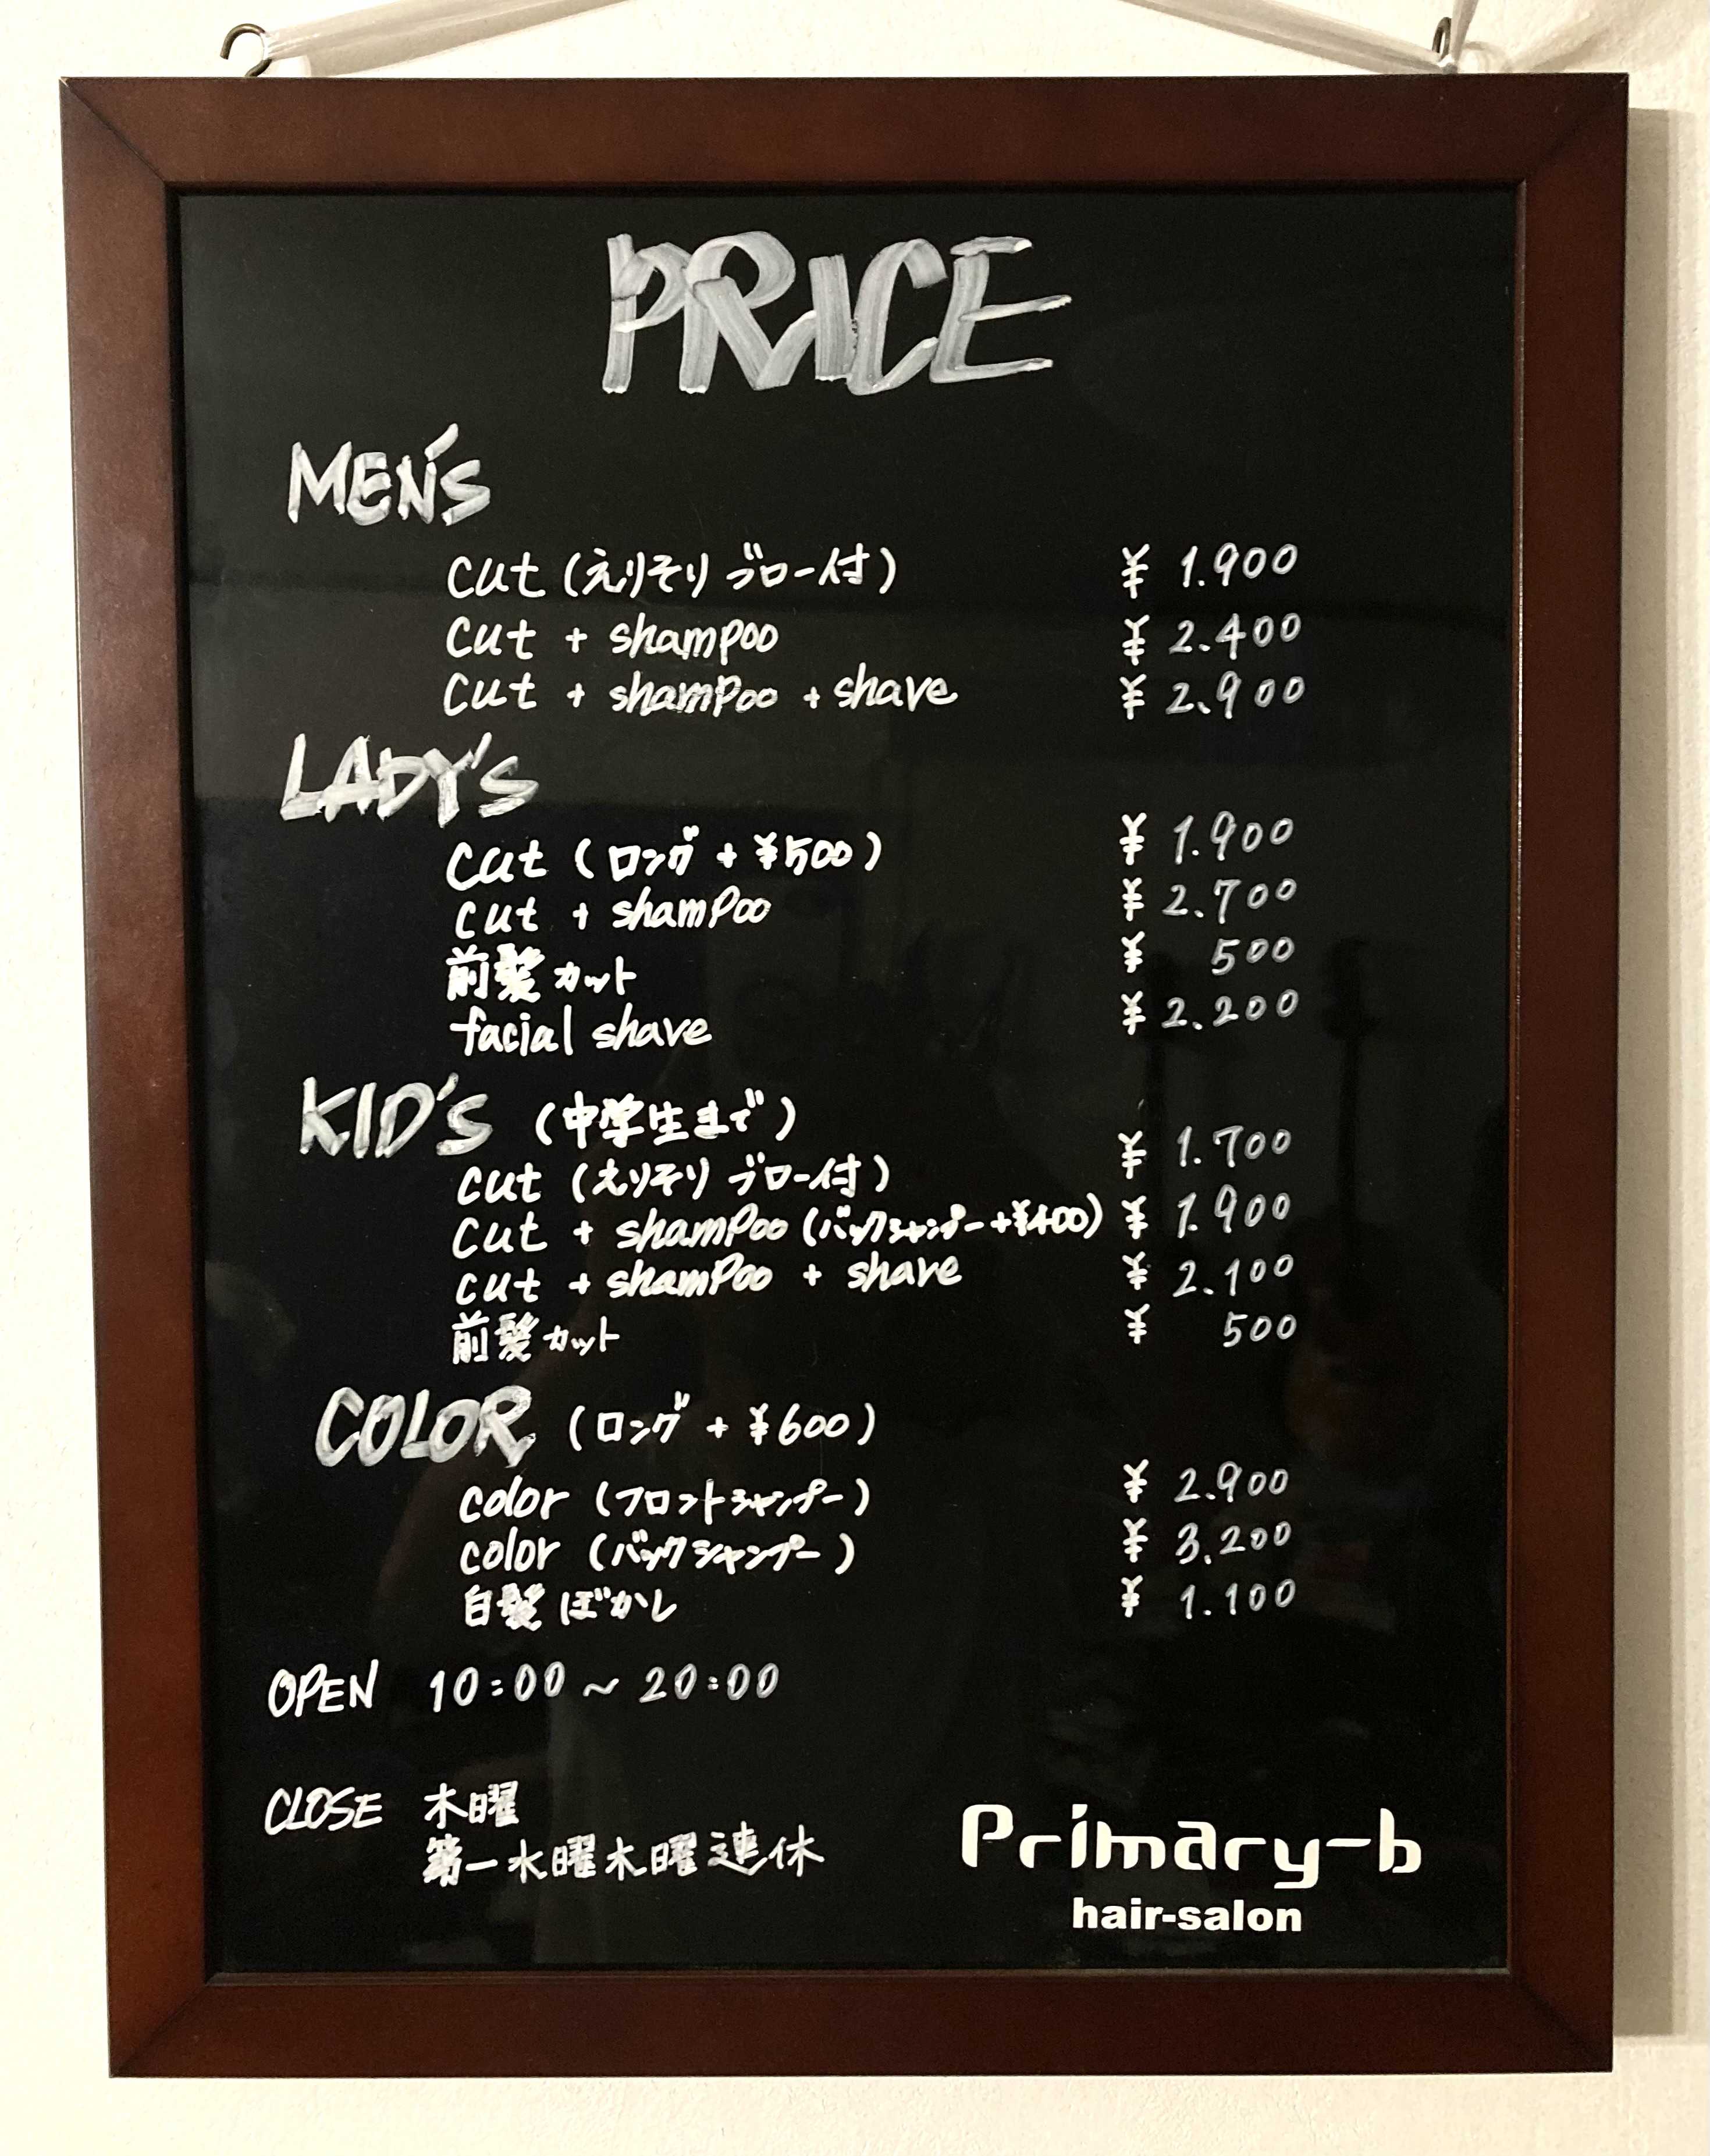 PRICE
MEN'S
cut (えりそり ブロー付) ¥ 1.900
cut + shampoo ¥ 2.400
cut + shampoo + shave ¥ 2.900
LADY'S
cut (ロング + ¥500) ¥ 1.900
cut + shampoo ¥ 2.700
前髪カット ¥ 500
facial shave ¥ 2.200
KID'S (中学生まで)
cut (えりそり ブロー付) ¥ 1.700
cut + shampoo (バックシャンプー+¥400) ¥ 1.900
cut + shampoo + shave ¥ 2.100
前髪カット ¥ 500
COLOR (ロング + ¥600)
color (フロントシャンプー) ¥ 2.900
color (バックシャンプー) ¥ 3.200
白髪ぼかし ¥ 1.100
OPEN 10:00 ~ 20:00
CLOSE 木曜
第一水曜木曜連休
Primary-b
hair-salon